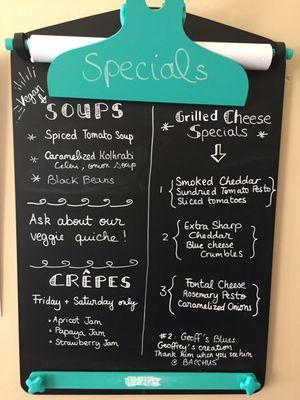 Specials
Vegan &
SOUPS
* Spiced Tomato Soup
* Caramelized Kolhrabi
Celeri, onion soup
* Black Beans
Ask about our
veggie quiche!
CRÊPES
Friday + Saturday only
• Apricot Jam
• Papaya Jam
• Strawberry Jam
Grilled Cheese
* Specials *
1 { Smoked Cheddar
Sundried Tomato Pesto
Sliced tomatoes }
2 { Extra Sharp
Cheddar
Blue cheese
Crumbles }
3 { Fontal Cheese
Rosemary Pesto
Caramelized Onions }
#2: Geoff's Blues
Geoffrey's creation
Thank him when you see him
@ BACCHUS